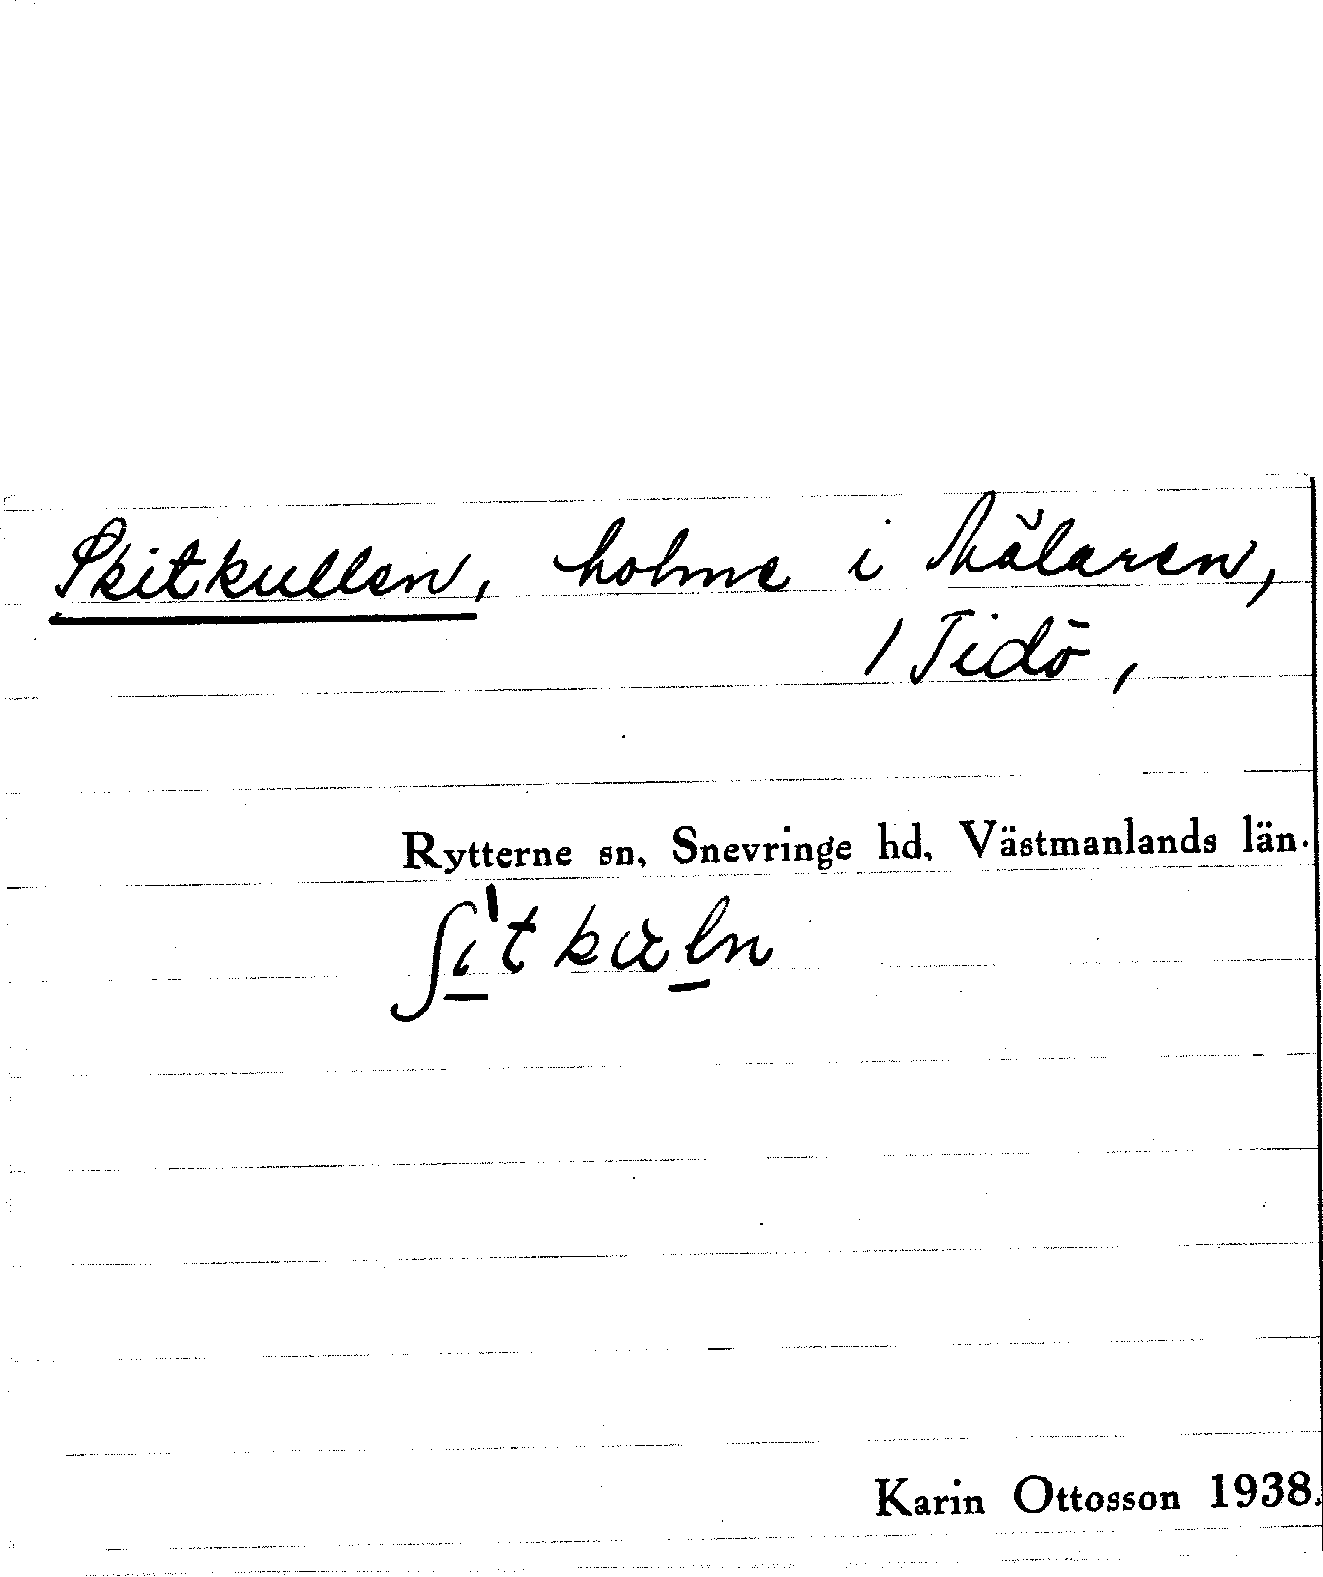 Skitkullen, holme i Mälaren,
/ Tidö,
Rytterne sn, Snevringe hd, Västmanlands län.
Karin Ottosson 1938.